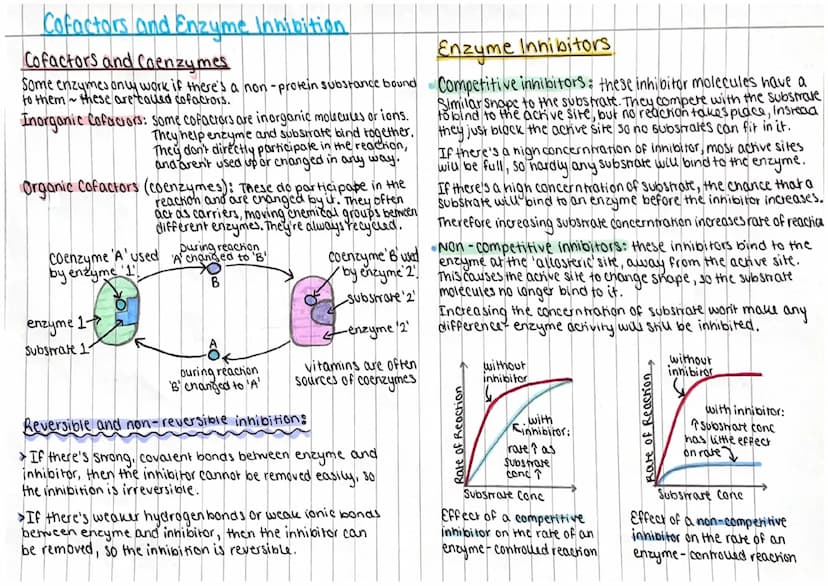 Cofactors and Enzyme Inhibition
Cofactors and Coenzymes
Some enzymes only work if there's a non-protein substance bound
to them ~ these are called cofactors.
Inorganic Cofactors: some cofactors are inorganic molecules or ions.
They help enzyme and substrate bind together.
They don't directly participate in the reaction,
and aren't used up or changed in any way.
Organic Cofactors (coenzymes): These do participate in the
reaction and are changed by it. They often
act as carriers, moving chemical groups between
different enzymes. They're always recycled.
coenzyme 'A' used
by enzyme '1'.
During reaction
'A' changed to 'B'
B
coenzyme 'B' used
by enzyme '2'.
substrate '2'
enzyme '2'
enzyme 1
substrate 1
A
During reaction
'B' changed to 'A'
vitamins are often
sources of coenzymes
Reversible and non-reversible inhibition:
> If there's strong, covalent bonds between enzyme and
inhibitor, then the inhibitor cannot be removed easily, so
the inhibition is irreversible.
> If there's weaker hydrogen bonds or weak ionic bonds
between enzyme and inhibitor, then the inhibitor can
be removed, so the inhibition is reversible.
Enzyme Inhibitors
• Competitive inhibitors: these inhibitor molecules have a
similar shape to the substrate. They compete with the substrate
to bind to the active site, but no reaction takes place, instead
they just block the active site so no substrates can fit in it.
If there's a high concentration of inhibitor, most active sites
will be full, so hardly any substrate will bind to the enzyme.
If there's a high concentration of substrate, the chance that a
substrate will bind to an enzyme before the inhibitor increases.
Therefore increasing substrate concentration increases rate of reaction
• Non-competitive inhibitors: these inhibitors bind to the
enzyme at the 'allosteric' site, away from the active site.
This causes the active site to change shape, so the substrate
molecules no longer bind to it.
Increasing the concentration of substrate won't make any
difference - enzyme activity will still be inhibited.
Rate of Reaction
without
inhibitor
with
inhibitor:
rate ↑ as
substrate
conc ↑
Substrate conc
Effect of a competitive
inhibitor on the rate of an
enzyme-controlled reaction
Rate of Reaction
without
inhibitor
with inhibitor:
↑ substrate conc
has little effect
on rate
Substrate conc
Effect of a non-competitive
inhibitor on the rate of an
enzyme-controlled reaction